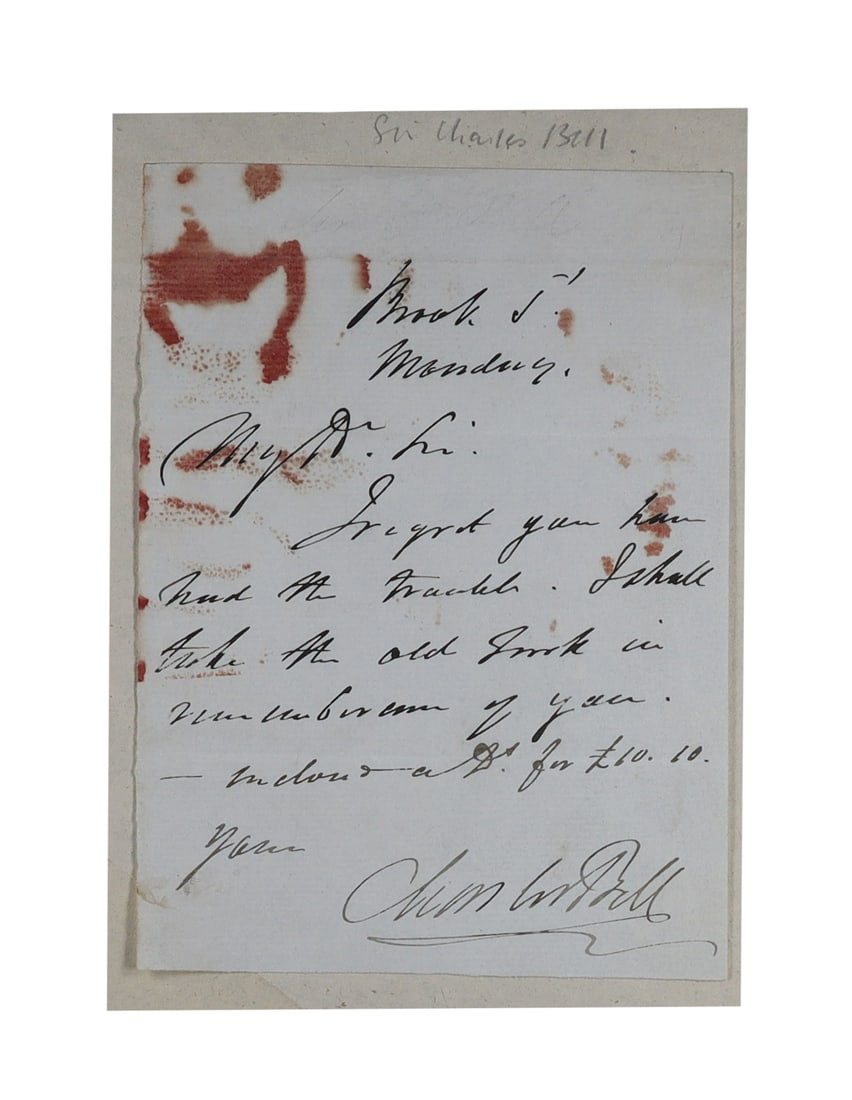 Sir Charles Bell.
Brook St
Monday.
My Dr. Sir.
I regret you have
had the trouble. I shall
take the old book in
remembrance of you.
— inclosed a Dt. for £10. 10.
yours
Charles Bell